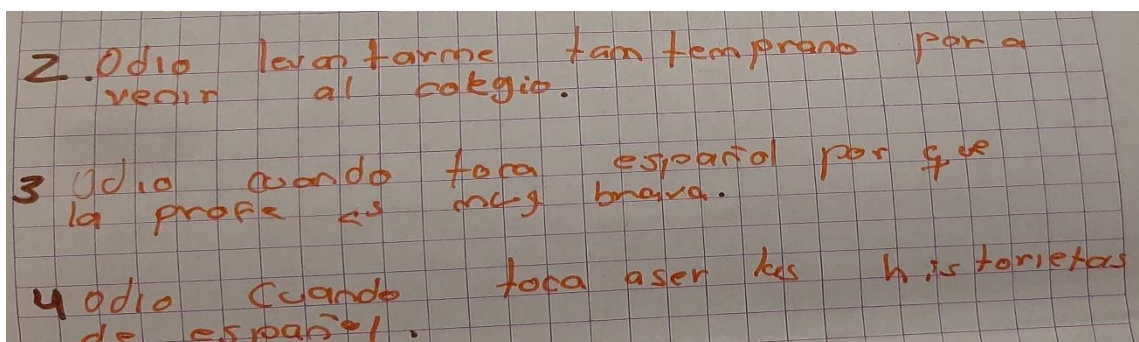 2. Odio levantarme tam temprano para
venir al colegio.
3 Odio cuando toca español por que
la profe es muy brava.
4 odio cuando toca aser las historietas
de español.